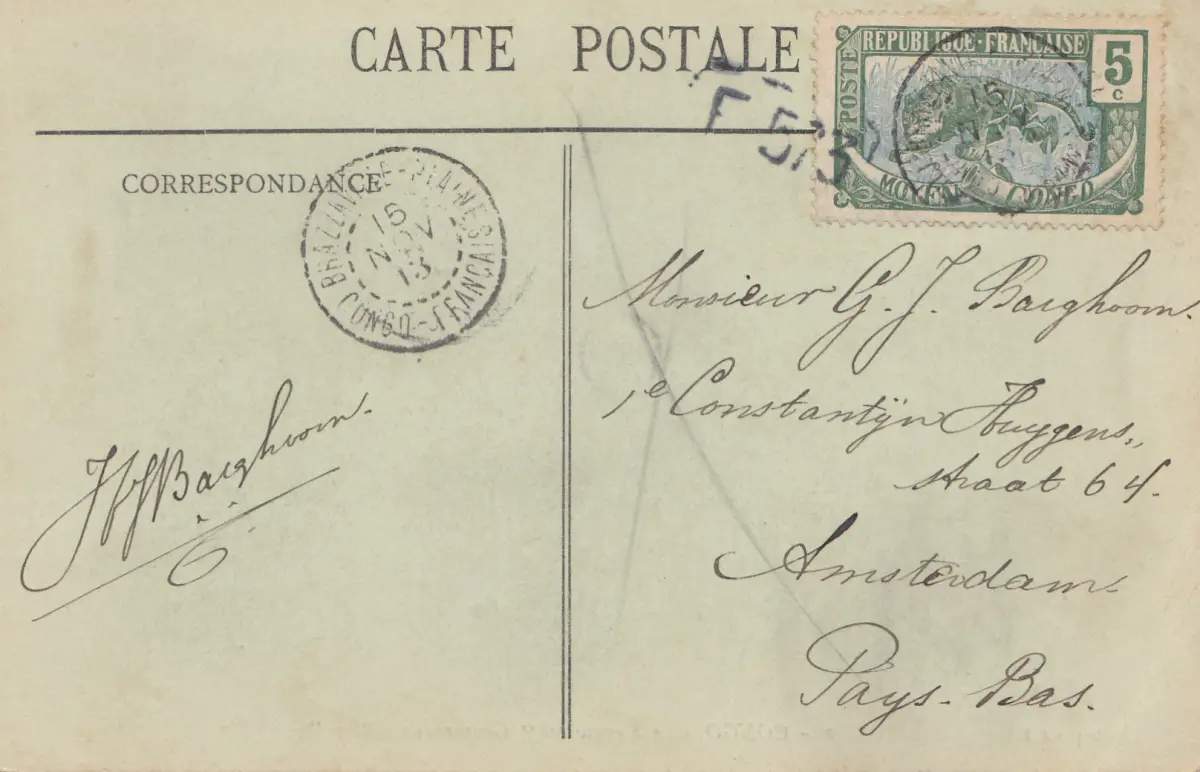 CARTE POSTALE
REPUBLIQUE·FRANÇAISE
5
c
POSTE
MOYEN CONGO
CORRESPONDANCE
BRAZZAVILLE-PLAINE
15
NOV
13
CONGO-FRANÇAIS
Monsieur G. J. Barghoorn.
1e Constantijn Huygens„
straat 64.
Amsterdam
Pays-Bas.
JHJBarghoorn.